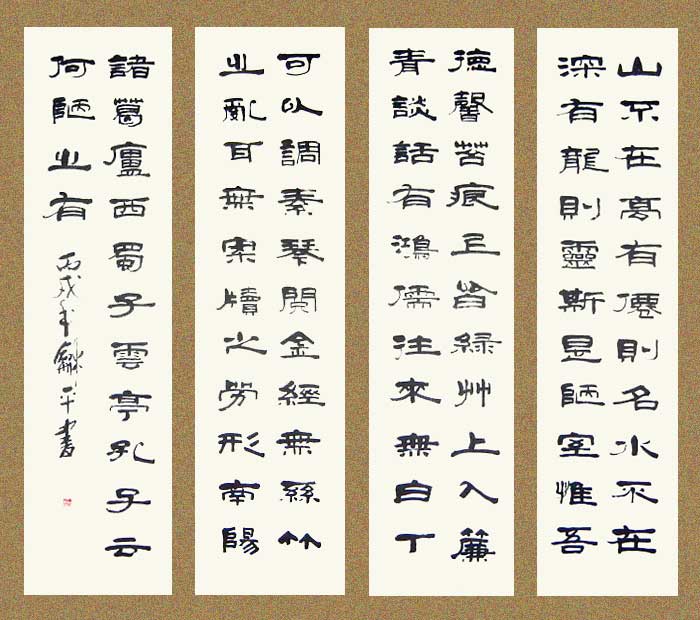 山不在高有僊則名水不在
深有龍則靈斯是陋室惟吾
德馨苔痕上皆緑艸上入簾
青談話有鴻儒往來無白丁
可以調素琴閱金經無絲竹
之亂耳無案牘之勞形南陽
諸葛廬西蜀子雲亭孔子云
何陋之有
丙戌年龢平書